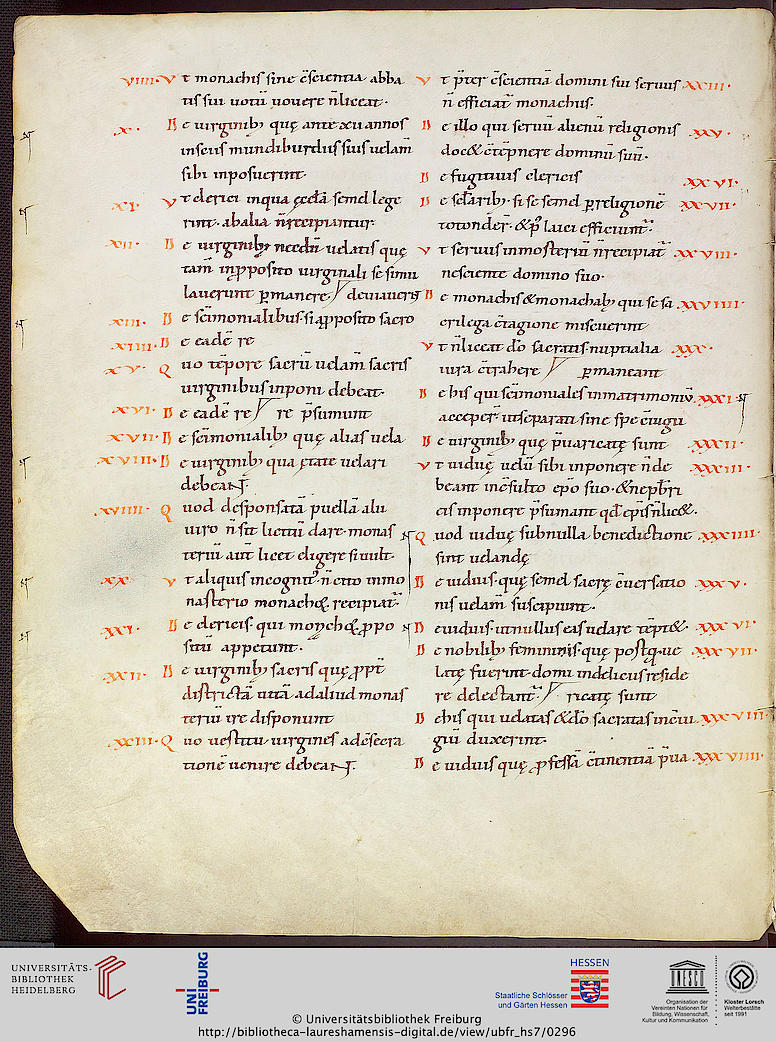 viiii. Vt monachis sine c̄scientia abba
tis sui uotū uouere n̄ liceat.
x. De virginib; quę ante xii annos
insciis mundiburdiis suis uelam̄
sibi inposuerint.
xi. Vt clerici in qua ęcctā semel lege
rint. ab alia n̄ recipiantur.
xii. De uirginib; necdū uelatis quę
tam̄ in p̱posito uirginali se simu
lauerunt p̱manere / deuiauerit
xiii. De sc̄imonialibus. si a p̱posito sacro
xiiii. De eadē re
xv. Quo tēpore sacrū uelam̄ sacris
uirginibus inponi debeat.
xvi. De eadē re / re p̄sumunt
xvii. De sc̄imonialib; quę alias uela
xviii. De uirginib; qua ętate uelari
debeant.
xviiii. Quod desponsatā puellā alii
uiro n̄ sit licitū dare. monas
teriū aut̄ licet eligere si uult.
xx. Vt aliquis incognit' n̄ cito in mo
nasterio monach&. recipiat̄.
xxi. De clericis. qui monch& p̱po
sitū appetunt.
xxii. De uirginib; sacris quę p̱pt̄
districtā uitā ad aliud monas
teriū ire disponunt
xxiii. Quo uestitu uirgines ad c̄secra
tionē uenire debeant.
Vt p̄ter c̄scientiā domini sui seruus xxiiii.
n̄ efficiat̄ monachus.
De illo qui seruū alienū religionis xxv.
doc& c̄tēpnere dominū suū.
De fugitiuis clericis xxvi.
De sęclarib; si se semel p̱ religionē xxvii.
totonder̄. & p' laici efficiunt̄.
Vt seruus in mosteriū n̄ recipiat̄ xxviii.
nesciente domino suo.
De monachis & monachab; qui se sa xxviiii.
crilega c̄tagione miscuerint
Vt n̄ liceat dō sacratis nuptialia xxx.
iura c̄trahere / p̱maneant
De his qui sc̄imoniales in matrimoniū xxxi.
acceper̄ ut separati sine spe c̄iugii
De uirginib; quę p̄uaricatę sunt xxxii.
Vt uiduę uelū sibi inponere n̄ de xxxiii.
beant inc̄sulto ep̄o suo. & ne p̄bri
eis inponere p̄sumant qd̄ ep̄is n̄ lic&.
Quod uiduę sub nulla benedictione xxxiiii.
sint uelandę
De uiduis. quę semel sacrę c̄uersatio xxxv.
nis uelam̄ susceperint.
De uiduis. ut nullus eas uelare tēpt&. xxxvi.
De nobilib; feminis. quę postq̄ ue xxxvii.
latę fuerint. domi in deliciis reside
re delectant̄. / ricatę sunt
De his qui uelatas & dō sacratas in c̄iu xxxviii.
giū duxerint.
De uiduis quę p̱fessā c̄tinentiā p̄ua xxxviiii.
UNIVERSITÄTS-
BIBLIOTHEK
HEIDELBERG
UNI
FREIBURG
HESSEN
Staatliche Schlösser
und Gärten Hessen
UNESCO
Organisation der
Vereinten Nationen für
Bildung, Wissenschaft,
Kultur und Kommunikation
Kloster Lorsch
Welterbestätte
seit 1991
© Universitätsbibliothek Freiburg
http://bibliotheca-laureshamensis-digital.de/view/ubfr_hs7/0296